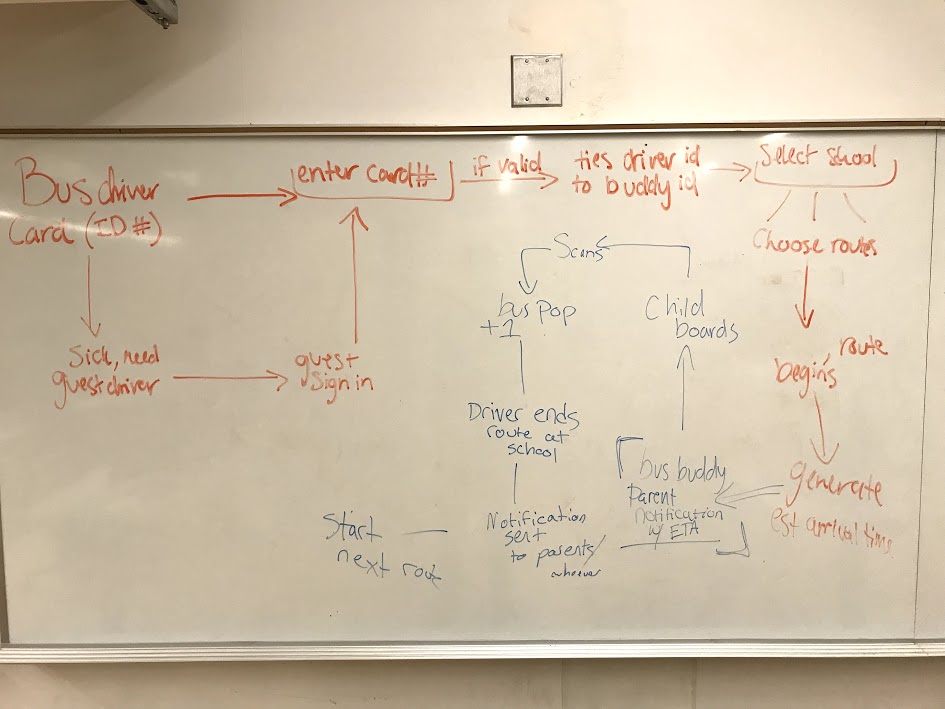 Bus driver
Card (ID #)
enter card#
if valid
ties driver id
to buddy id
Select shool
Choose routes
route
begins
generate
est arrival time
Sick, need
guest driver
guest
Sign in
bus buddy
Parent
notification
w/ ETA
Child
boards
Scans
bus pop
+1
Driver ends
route at
school
Notification
sent
to parents/
whoever
Start
next rout